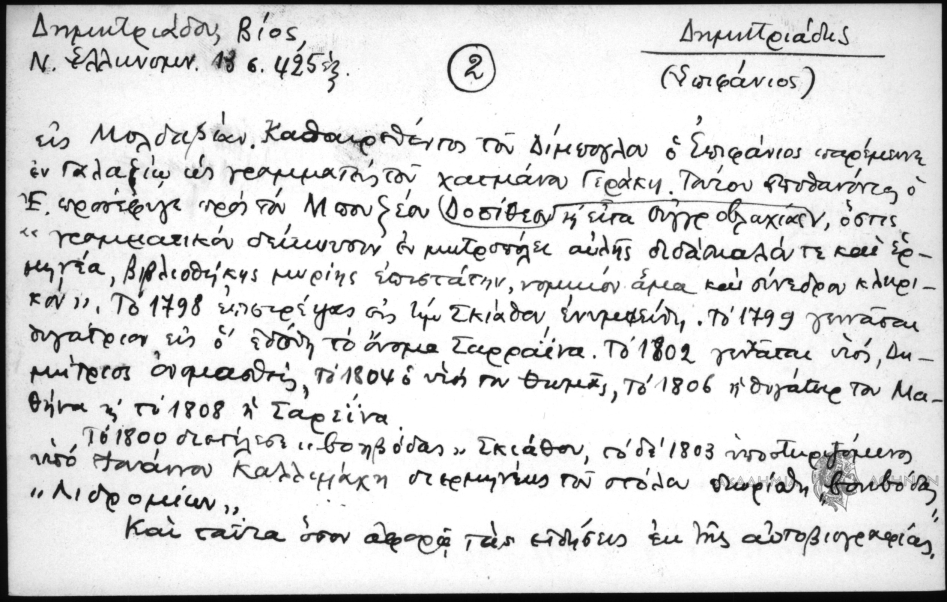 Δημητριάδου Βίος,
Ν. Ἑλληνομν. 13 σ. 425 ἑξ.
②
Δημητριάδης
(Ἐπιφάνιος)
εἰς Μολδαβίαν. Καθαιρεθέντος τοῦ ὁ Ἐπιφάνιος παρέμεινε
ἐν Γαλαζίῳ ὡς γραμματεὺς τοῦ χατμάνου Γεράκη. Τούτου ἀποθανόντος ὁ
Ἐ. προσέφυγε πρὸς τὸν Μπουζέου Δοσίθεον κ' εἶτα Οὐγγροβλαχίας, ὅστις
"γραμματικὸν δείκνυσιν ἐν μητροπόλει αὐλῆς διδάσκαλόν τε καὶ ἑρ-
μηνέα, βιβλιοθήκης μυρίης ἐπιστάτην, νομικὸν ἅμα καὶ σύνεδρον κληρι-
κόν". Τὸ 1798 ἐπιστρέψας εἰς τὴν Σκιάθον ἐνυμφεύθη. Τὸ 1799 γεννᾶται
θυγάτριον εἰς ὃ ἐδόθη τὸ ὄνομα Σαρραΐνα. Τὸ 1802 γεννᾶται υἱός, Δη-
μήτριος ὀνομασθείς, τὸ 1804 ὁ υἱός του Θωμᾶς, τὸ 1806 ἡ θυγάτηρ του Μα-
θήνα κ' τὸ 1808 ἡ Σαρεΐνα.
Τὸ 1800 διετέλεσε "βοηβόδας" Σκιάθου, τὸ δὲ 1803 ὑποστηριζόμενος
ὑπὸ Καλλιμάχη διερμηνέως τοῦ στόλου βοηβόδας
"Λιδρομίων"
Καὶ ταῦτα ὅσον ἀφορᾷ τὰς εἰδήσεις ἐκ τῆς αὐτοβιογραφίας.